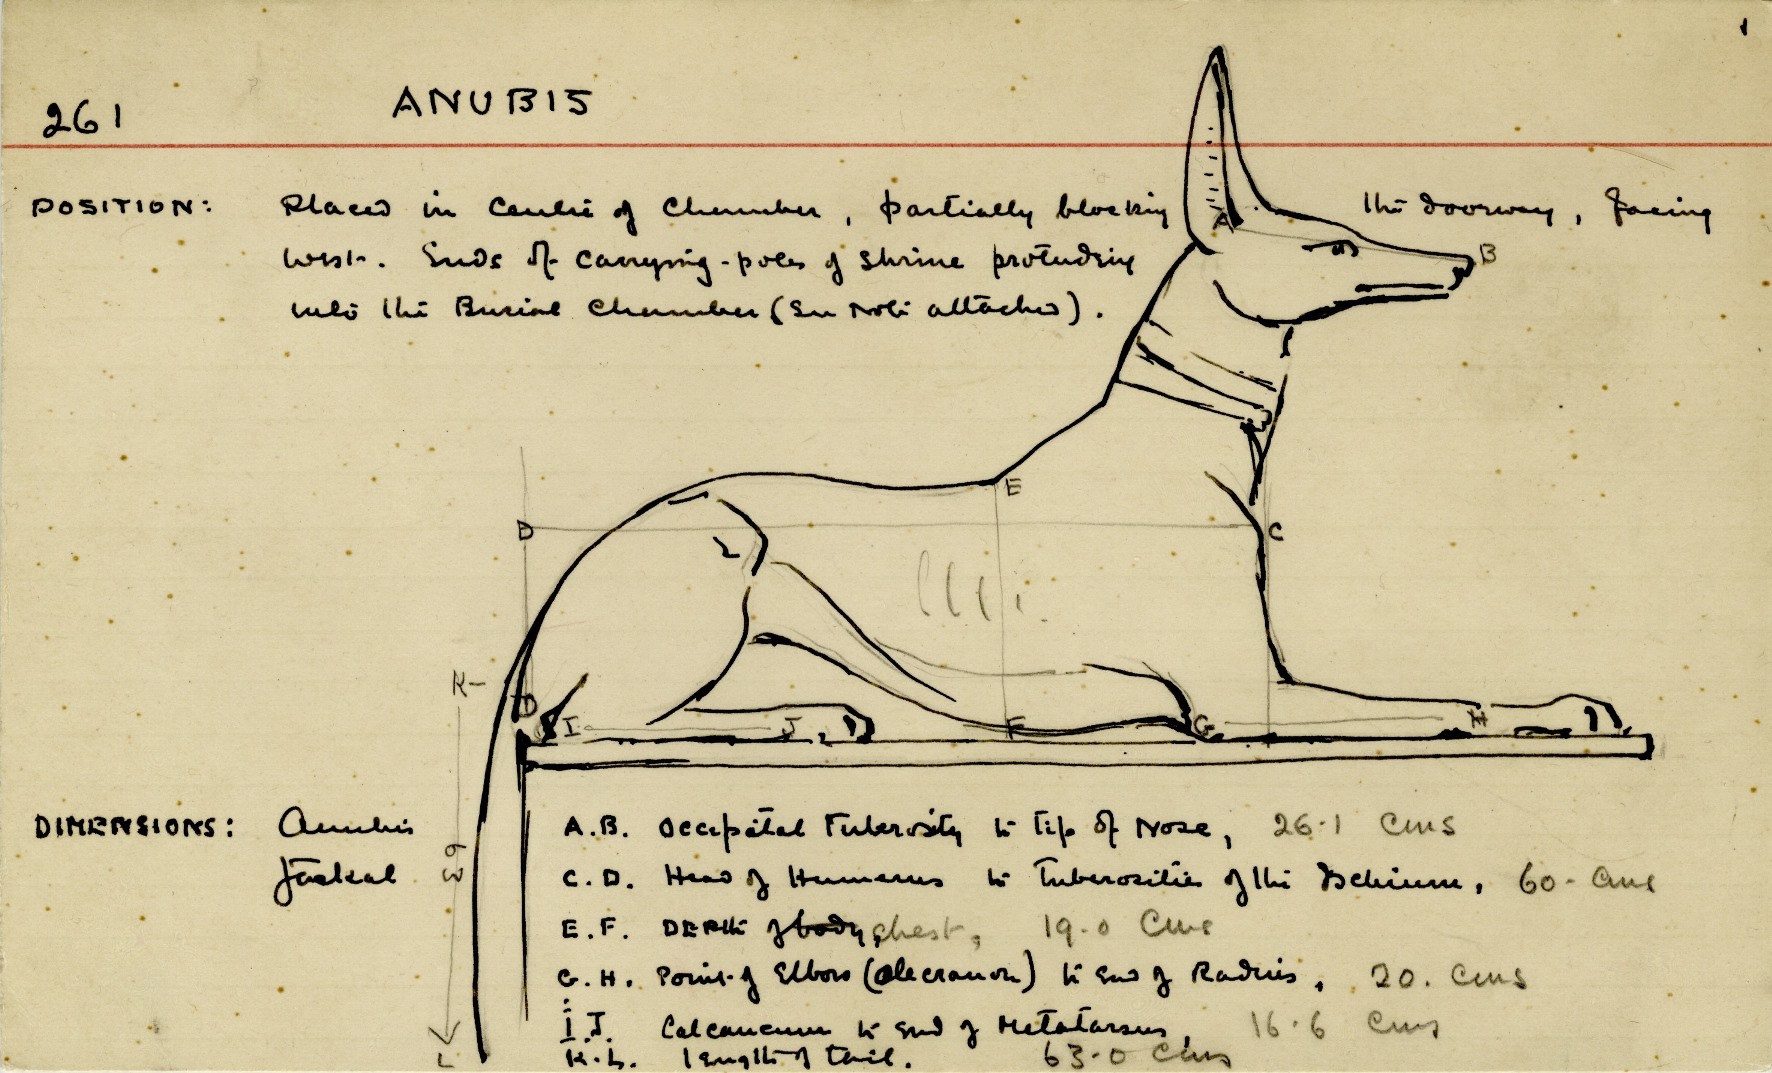 1
261 ANUBIS
POSITION: Placed in Centre of Chamber, partially blocking the doorway, facing
West. Ends of carrying-poles of shrine protruding
into the Burial Chamber (See Note attached).
A
B
E
D
C
K
D
I J F G H
63
L
DIMENSIONS: Anubis
Jackal
A.B. Occipital Tuberosity to tip of Nose, 26.1 cms
C.D. Head of Humerus to Tuberosities of the Ischium, 60. cms
E.F. DEPth of body, chest, 19.0 Cms
G.H. Point of Elbow (Olecranon) to End of Radius, 20. Cms
I.J. Calcaneum to End of Metatarsus, 16.6 Cms
K.L. length of tail. 63.0 Cms